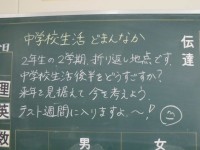 中学校生活 どまんなか
2年生の2学期、折り返し地点です。
中学校生活後半をどうすごすか?
来年を見据えて今を考えよう。
テスト週間に入りますよ〜!
伝達
理
英
数
男
女